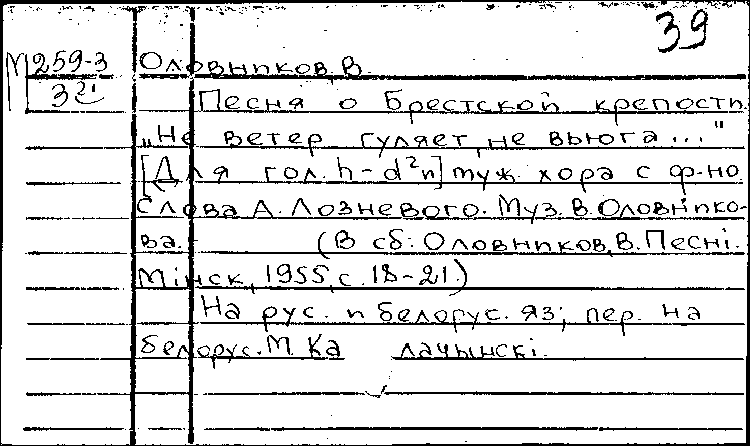 39
М259-3 Оловников, В.
321 Песня о Брестской крепости
„Не ветер гуляет, не вьюга..."
[Для гол. h-d²и] муж. хора с ф-но
Слова А. Лозневого. Муз. В. Оловнико-
ва. (В сб: Оловников, В. Песні.
Мінск, 1955, с. 18-21.)
На рус. и белорус. яз; пер. на
белорус. М. Ка лачынскі.